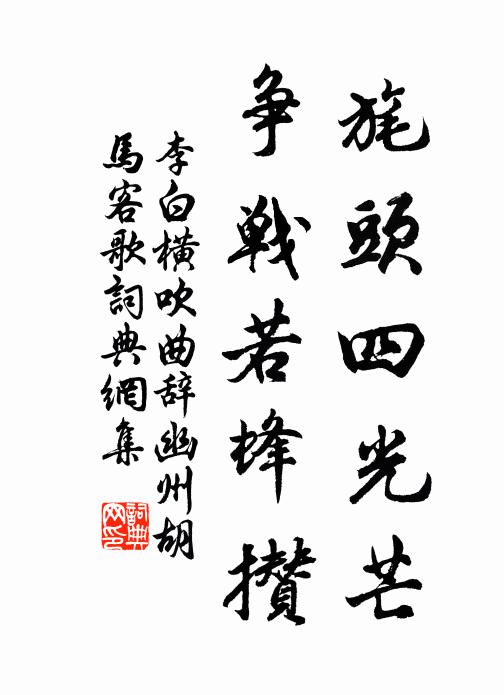 旄頭四光芒
争戦若蜂攅
李白横吹曲辞幽州胡
馬客歌詞典網集
詞典网印